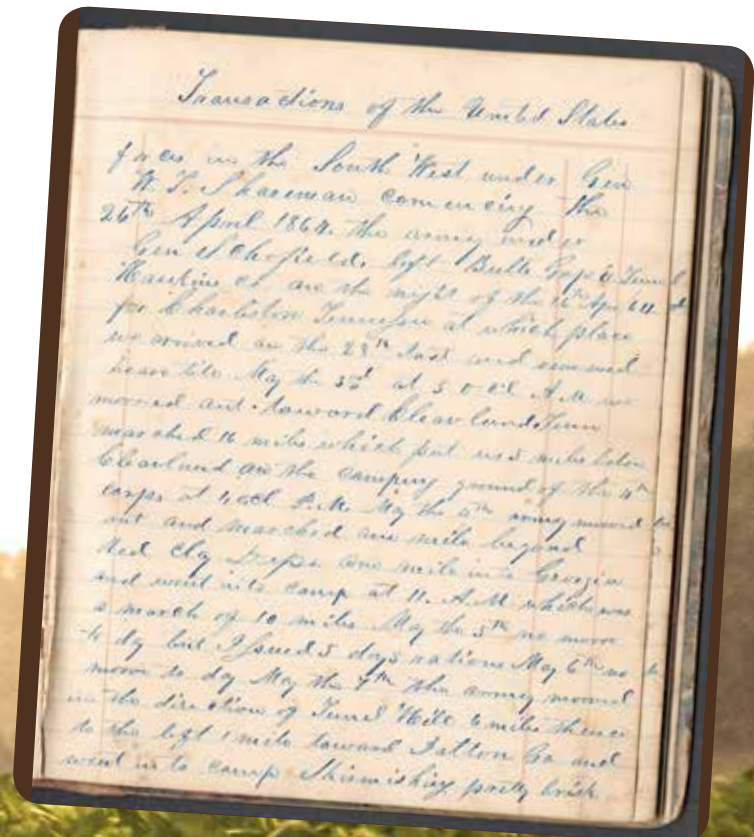 Transactions of the United States
forces in the South West under Gen
W. T. Shareman comencing the
26th April 1864. the army under
Gen Schofield. left Bulls Gap E Tenn
on the night of the Apr
for Charleston Tennessee at which place
we arrived on the 29th Inst and remained
heare till May the 3d at 5 0 cl A.M we
moved out toward Cleavland Tenn
marched 16 miles which put us 5 miles below
Cleavland on the camping ground of the 4th
corps at 4 ocl P.M. May the 4th army moved
out and marched one mile beyond
Red Clay one mile into Georgia
and went into camp at 11. A.M which was
a march of 10 miles May the 5th no move
to dy but Issued 5 days rations May 6th no
move to dy May the 7th the army moved
in the direction of Tunel Hill 6 miles thence
to the left 1 mile toward Dalton Ga and
went in to camp Skirmishing pretty brisk